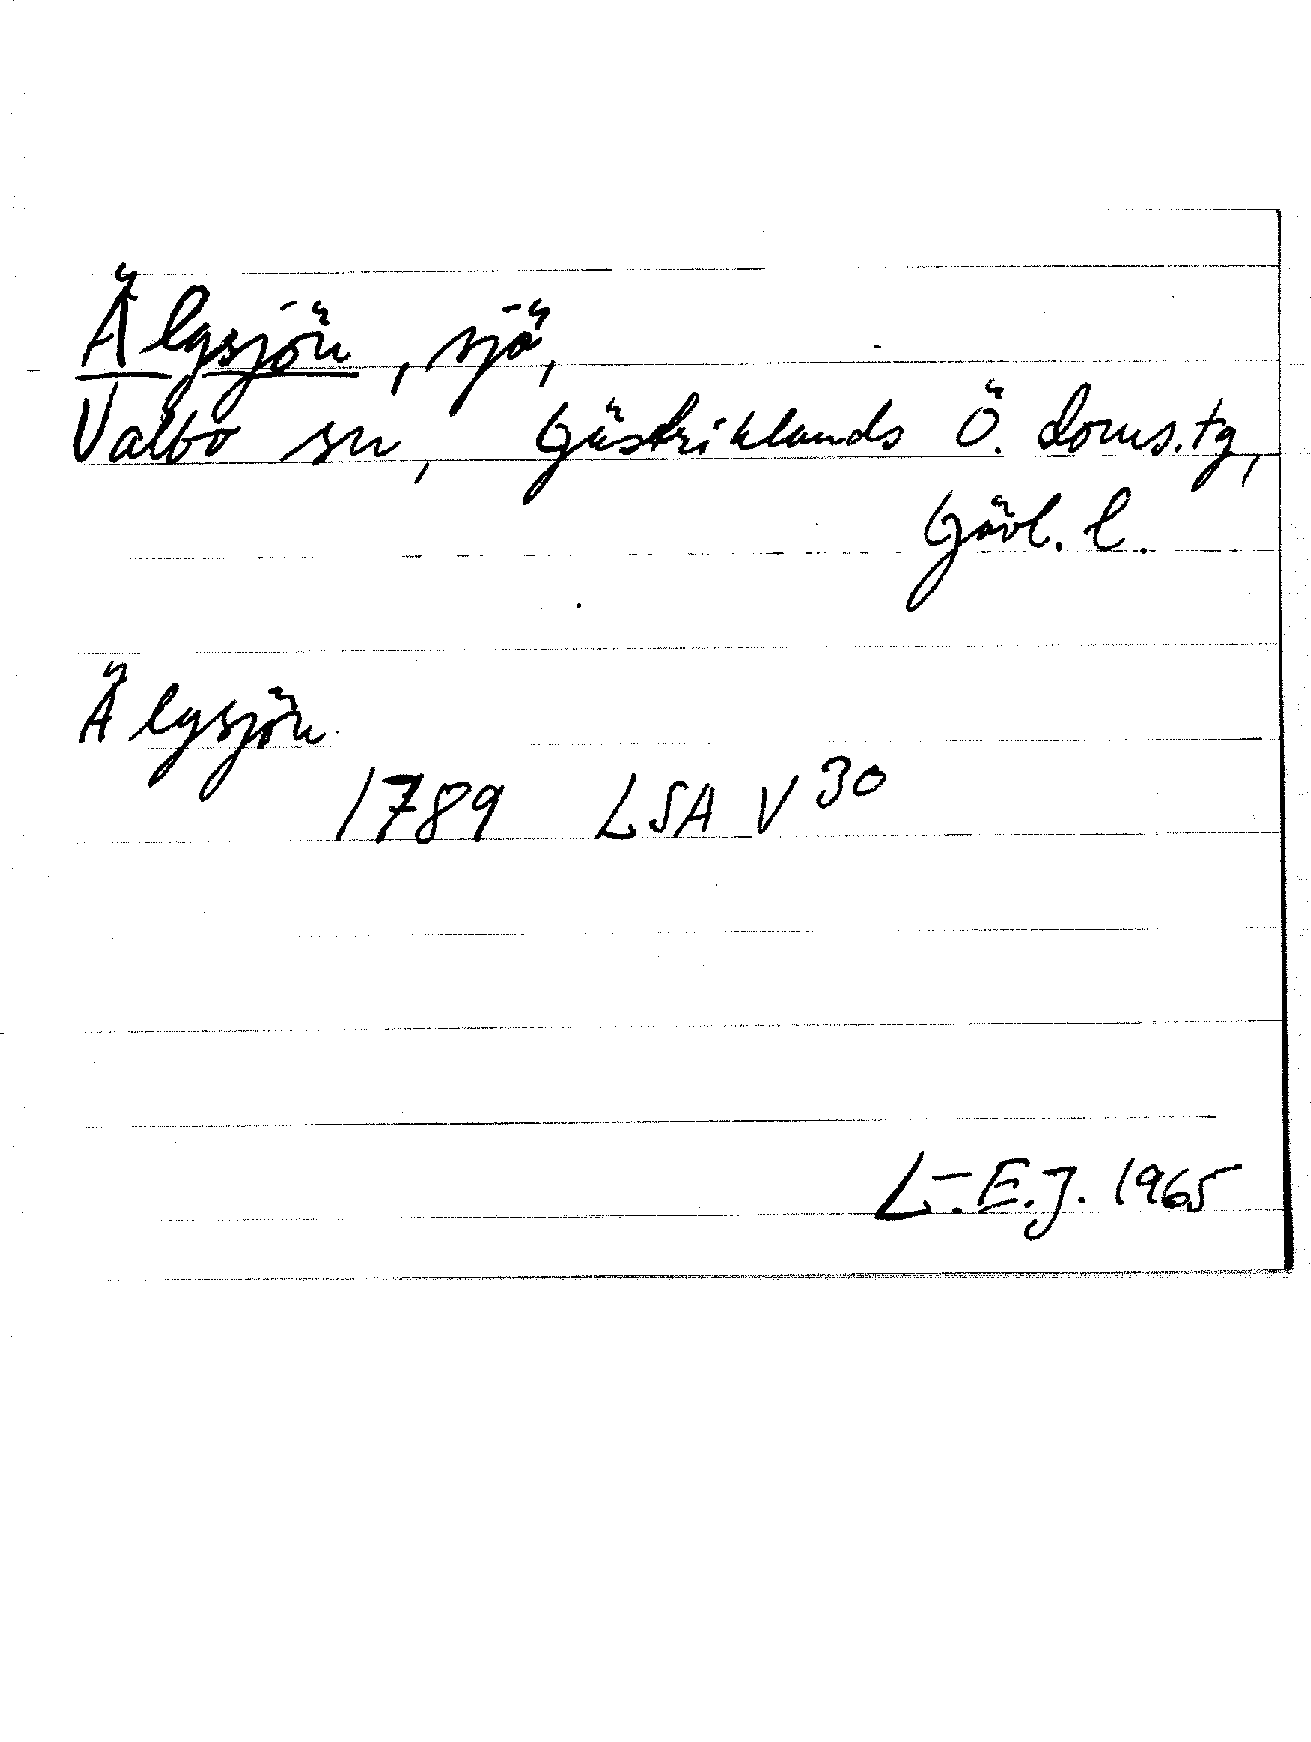 Älgsjön, sjö,
Valbo sn, Gästriklands Ö. doms.tg,
Gävl. l.
Älgsjön
1789 LSA V 30
L-E.J. 1965